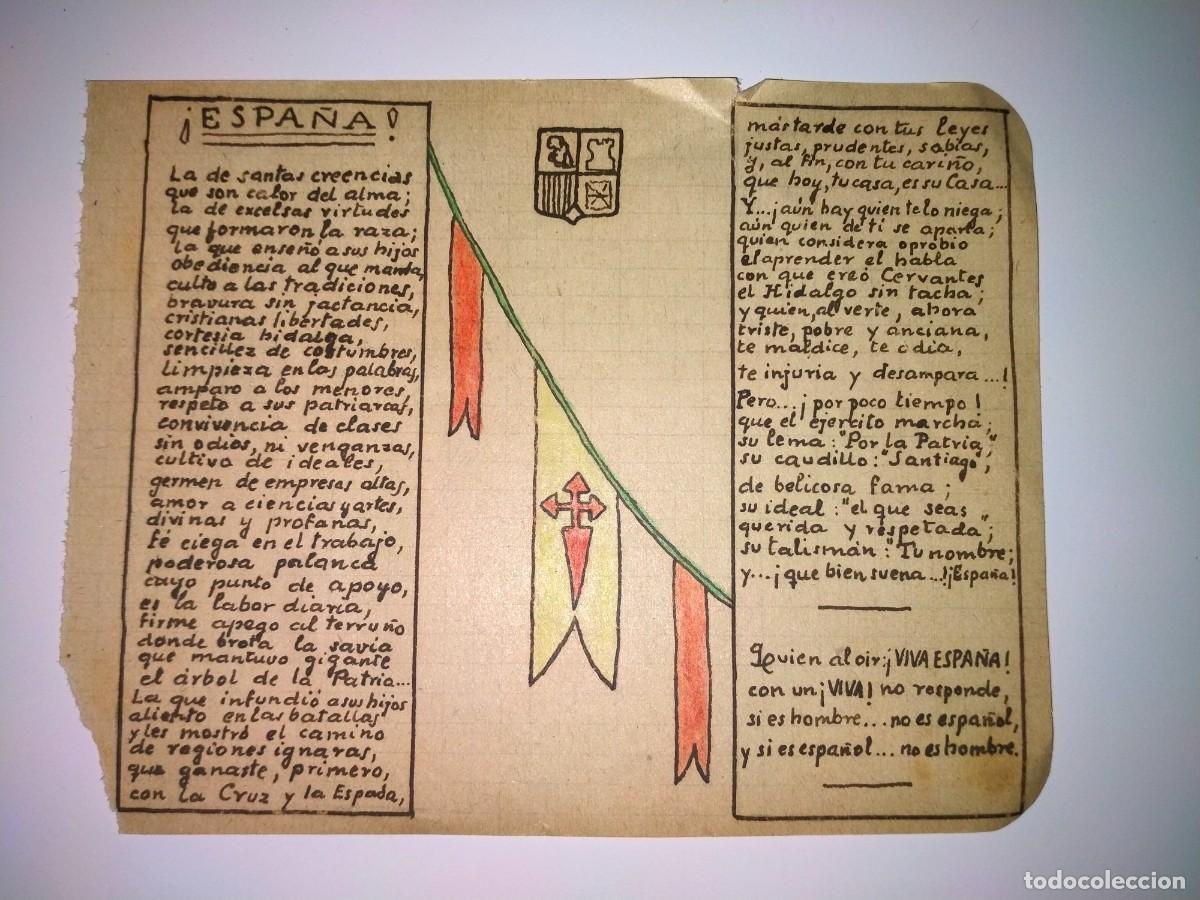 ¡ESPAÑA!
La de santas creencias
que son calor del alma;
la de excelsas virtudes
que formaron la raza;
la que enseñó a sus hijos
obediencia al que manda,
culto a las tradiciones,
bravura sin jactancia,
cristianas libertades,
cortesia hidalga,
sencillez de costumbres,
limpieza en las palabras,
amparo a los menores,
respeto a sus patriarcas,
convivencia de clases
sin odios, ni venganzas,
cultivo de ideales,
germen de empresas altas,
amor a ciencias y artes,
divinas y profanas,
fé ciega en el trabajo,
poderosa palanca
cuyo punto de apoyo,
es la labor diaria,
firme apego al terruño
donde brota la savia
que mantuvo gigante
el árbol de la Patria...
La que infundió a sus hijos
aliento en las batallas
y les mostró el camino
de regiones ignaras,
que ganaste, primero,
con la Cruz y la Espada,
más tarde con tus leyes
justas, prudentes, sabias,
y, al fin, con tu cariño,
que hoy, tu casa, es su Casa...
Y... ¡aún hay quien te lo niega;
aún quien de ti se aparta;
quien considera oprobio
el aprender el habla
con que creó Cervantes
el Hidalgo sin tacha;
y quien, al verte, ahora
triste, pobre y anciana,
te maldice, te odia,
te injuria y desampara...!
Pero... ¡por poco tiempo!
que el ejercito marcha;
su lema: "Por la Patria";
su caudillo: "Santiago",
de belicosa fama;
su ideal: "el que seas
querida y respetada";
su talismán: "Tu nombre;
y... ¡que bien suena...! ¡España!
Quien al oir: ¡VIVA ESPAÑA!
con un ¡VIVA! no responde,
si es hombre... no es español,
y si es español... no es hombre.
todocoleccion